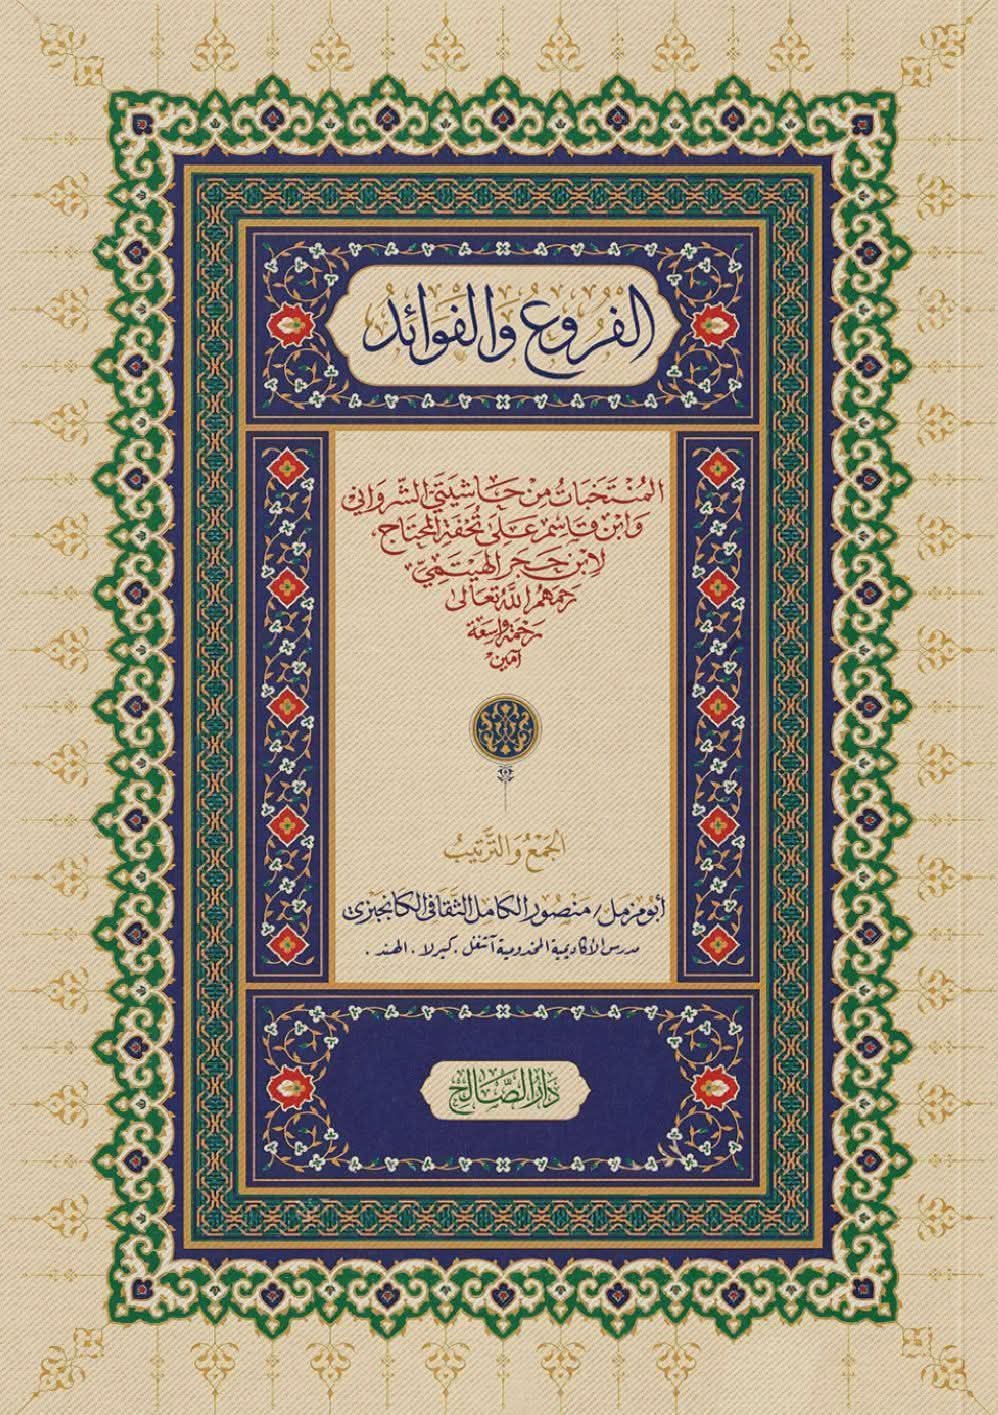 الفُرُوعُ وَالفَوَائِدُ
المُنْتَخَبَاتُ مِنْ حَاشِيَتَيِ الشِّرْوَانِي
وَابْنِ قَاسِمْ عَلَى تُحْفَةِ المُحْتَاجِ،
لِابْنِ حَجَرِ الهَيْتَمِيّ
رَحِمَهُمُ اللَّهُ تَعَالَى
رَحْمَةً وَاسِعَةً
آمين
الجَمْعُ وَالتَّرْتِيبُ
أبو مزمل / منصور الكامل الثقافي الكانجيزي
مدرس الأكاديمية المخدومية آتنغل . كيرلا . الهند .
دَارُ الصَّالِحْ